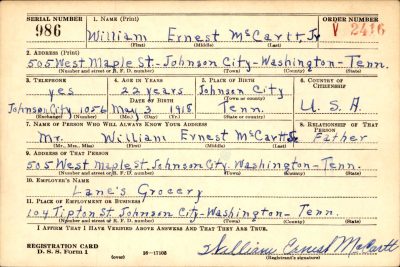 SERIAL NUMBER 1. NAME (Print) ORDER NUMBER
986 William Ernest McCartt, Jr V 2416
(First) (Middle) (Last)
2. ADDRESS (Print)
505 West Maple St.- Johnson City-Washington-Tenn.
(Number and street or R. F. D. number) (Town) (County) (State)
3. TELEPHONE 4. AGE IN YEARS 5. PLACE OF BIRTH 6. COUNTRY OF CITIZENSHIP
yes 22 years Johnson City
DATE OF BIRTH (Town or county)
Johnson City 1056 May 3 1918 Tenn. U. S. A.
(Exchange) (Number) (Mo.) (Day) (Yr.) (State or country)
7. NAME OF PERSON WHO WILL ALWAYS KNOW YOUR ADDRESS 8. RELATIONSHIP OF THAT PERSON
Mr. William Ernest McCartt Sr Father
(Mr., Mrs., Miss) (First) (Middle) (Last)
9. ADDRESS OF THAT PERSON
505 West Maple St. Johnson City. Washington-Tenn.
(Number and street or R. F. D. number) (Town) (County) (State)
10. EMPLOYER'S NAME
Lane's Grocery
11. PLACE OF EMPLOYMENT OR BUSINESS
104 Tipton St. Johnson City-Washington- Tenn.
(Number and street or R. F. D. number) (Town) (County) (State)
I AFFIRM THAT I HAVE VERIFIED ABOVE ANSWERS AND THAT THEY ARE TRUE.
REGISTRATION CARD William Ernest McCartt
D. S. S. Form 1 16-17105 (over) (Registrant's signature)